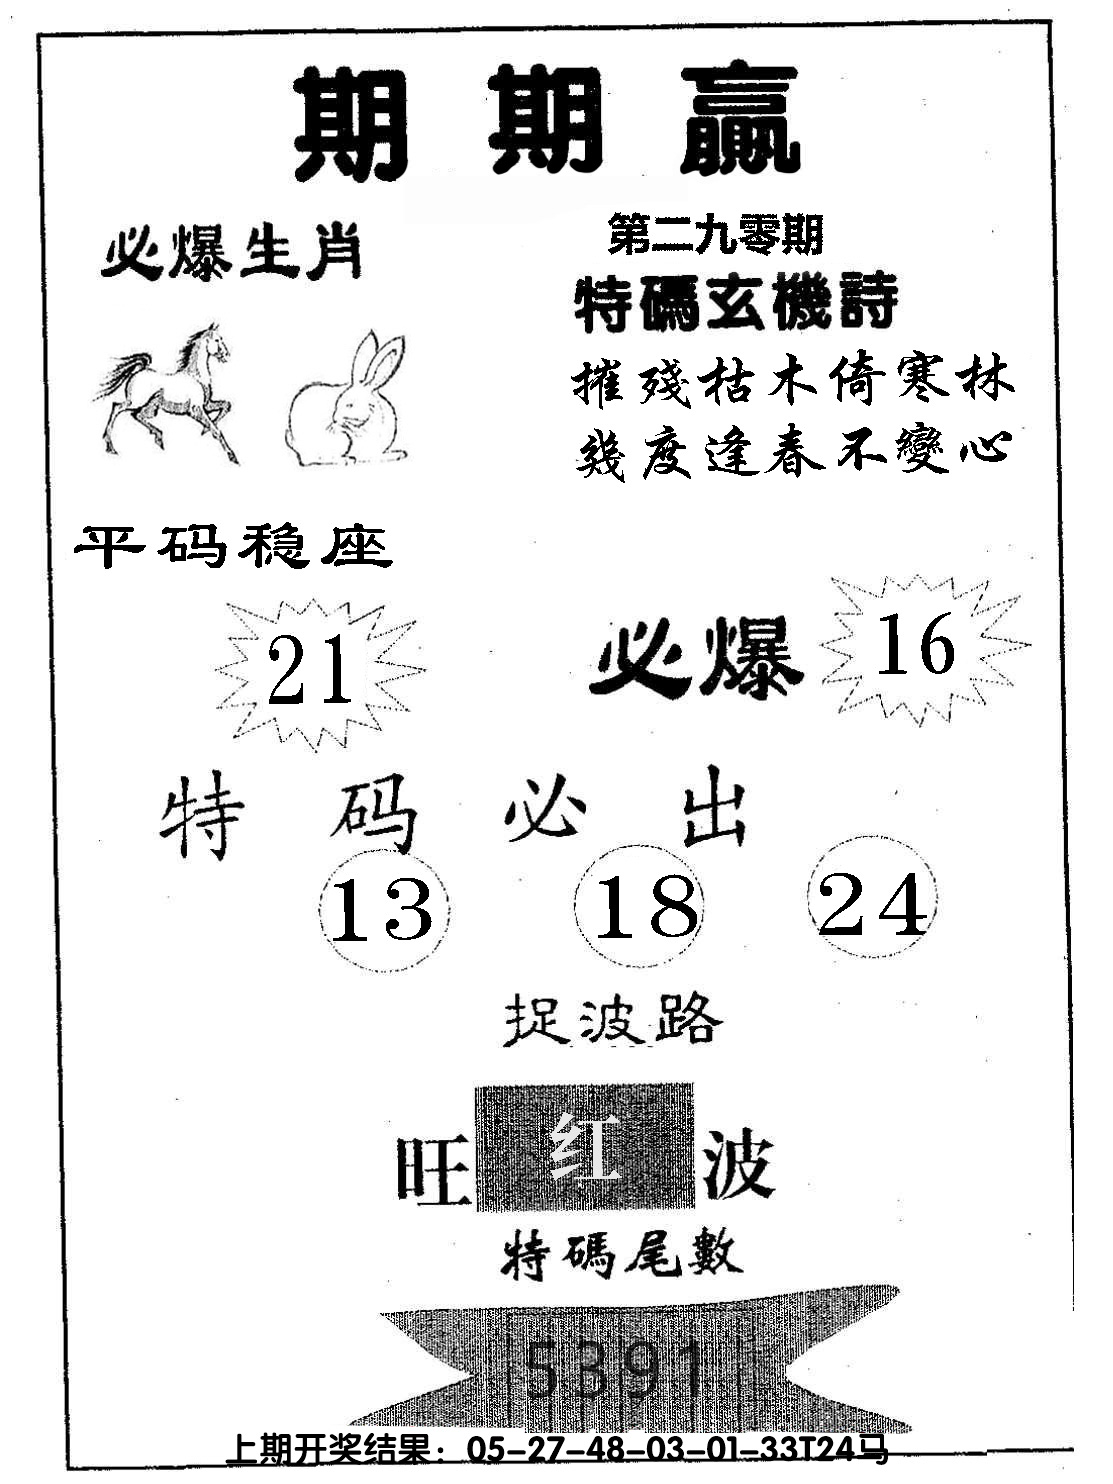 期期赢
必爆生肖
第二九零期
特碼玄機詩
摧殘枯木倚寒林
幾度逢春不變心
平码稳座
21
必爆 16
特码必出
13 18 24
捉波路
旺 红 波
特碼尾數
5391
上期开奖结果：05-27-48-03-01-33T24马